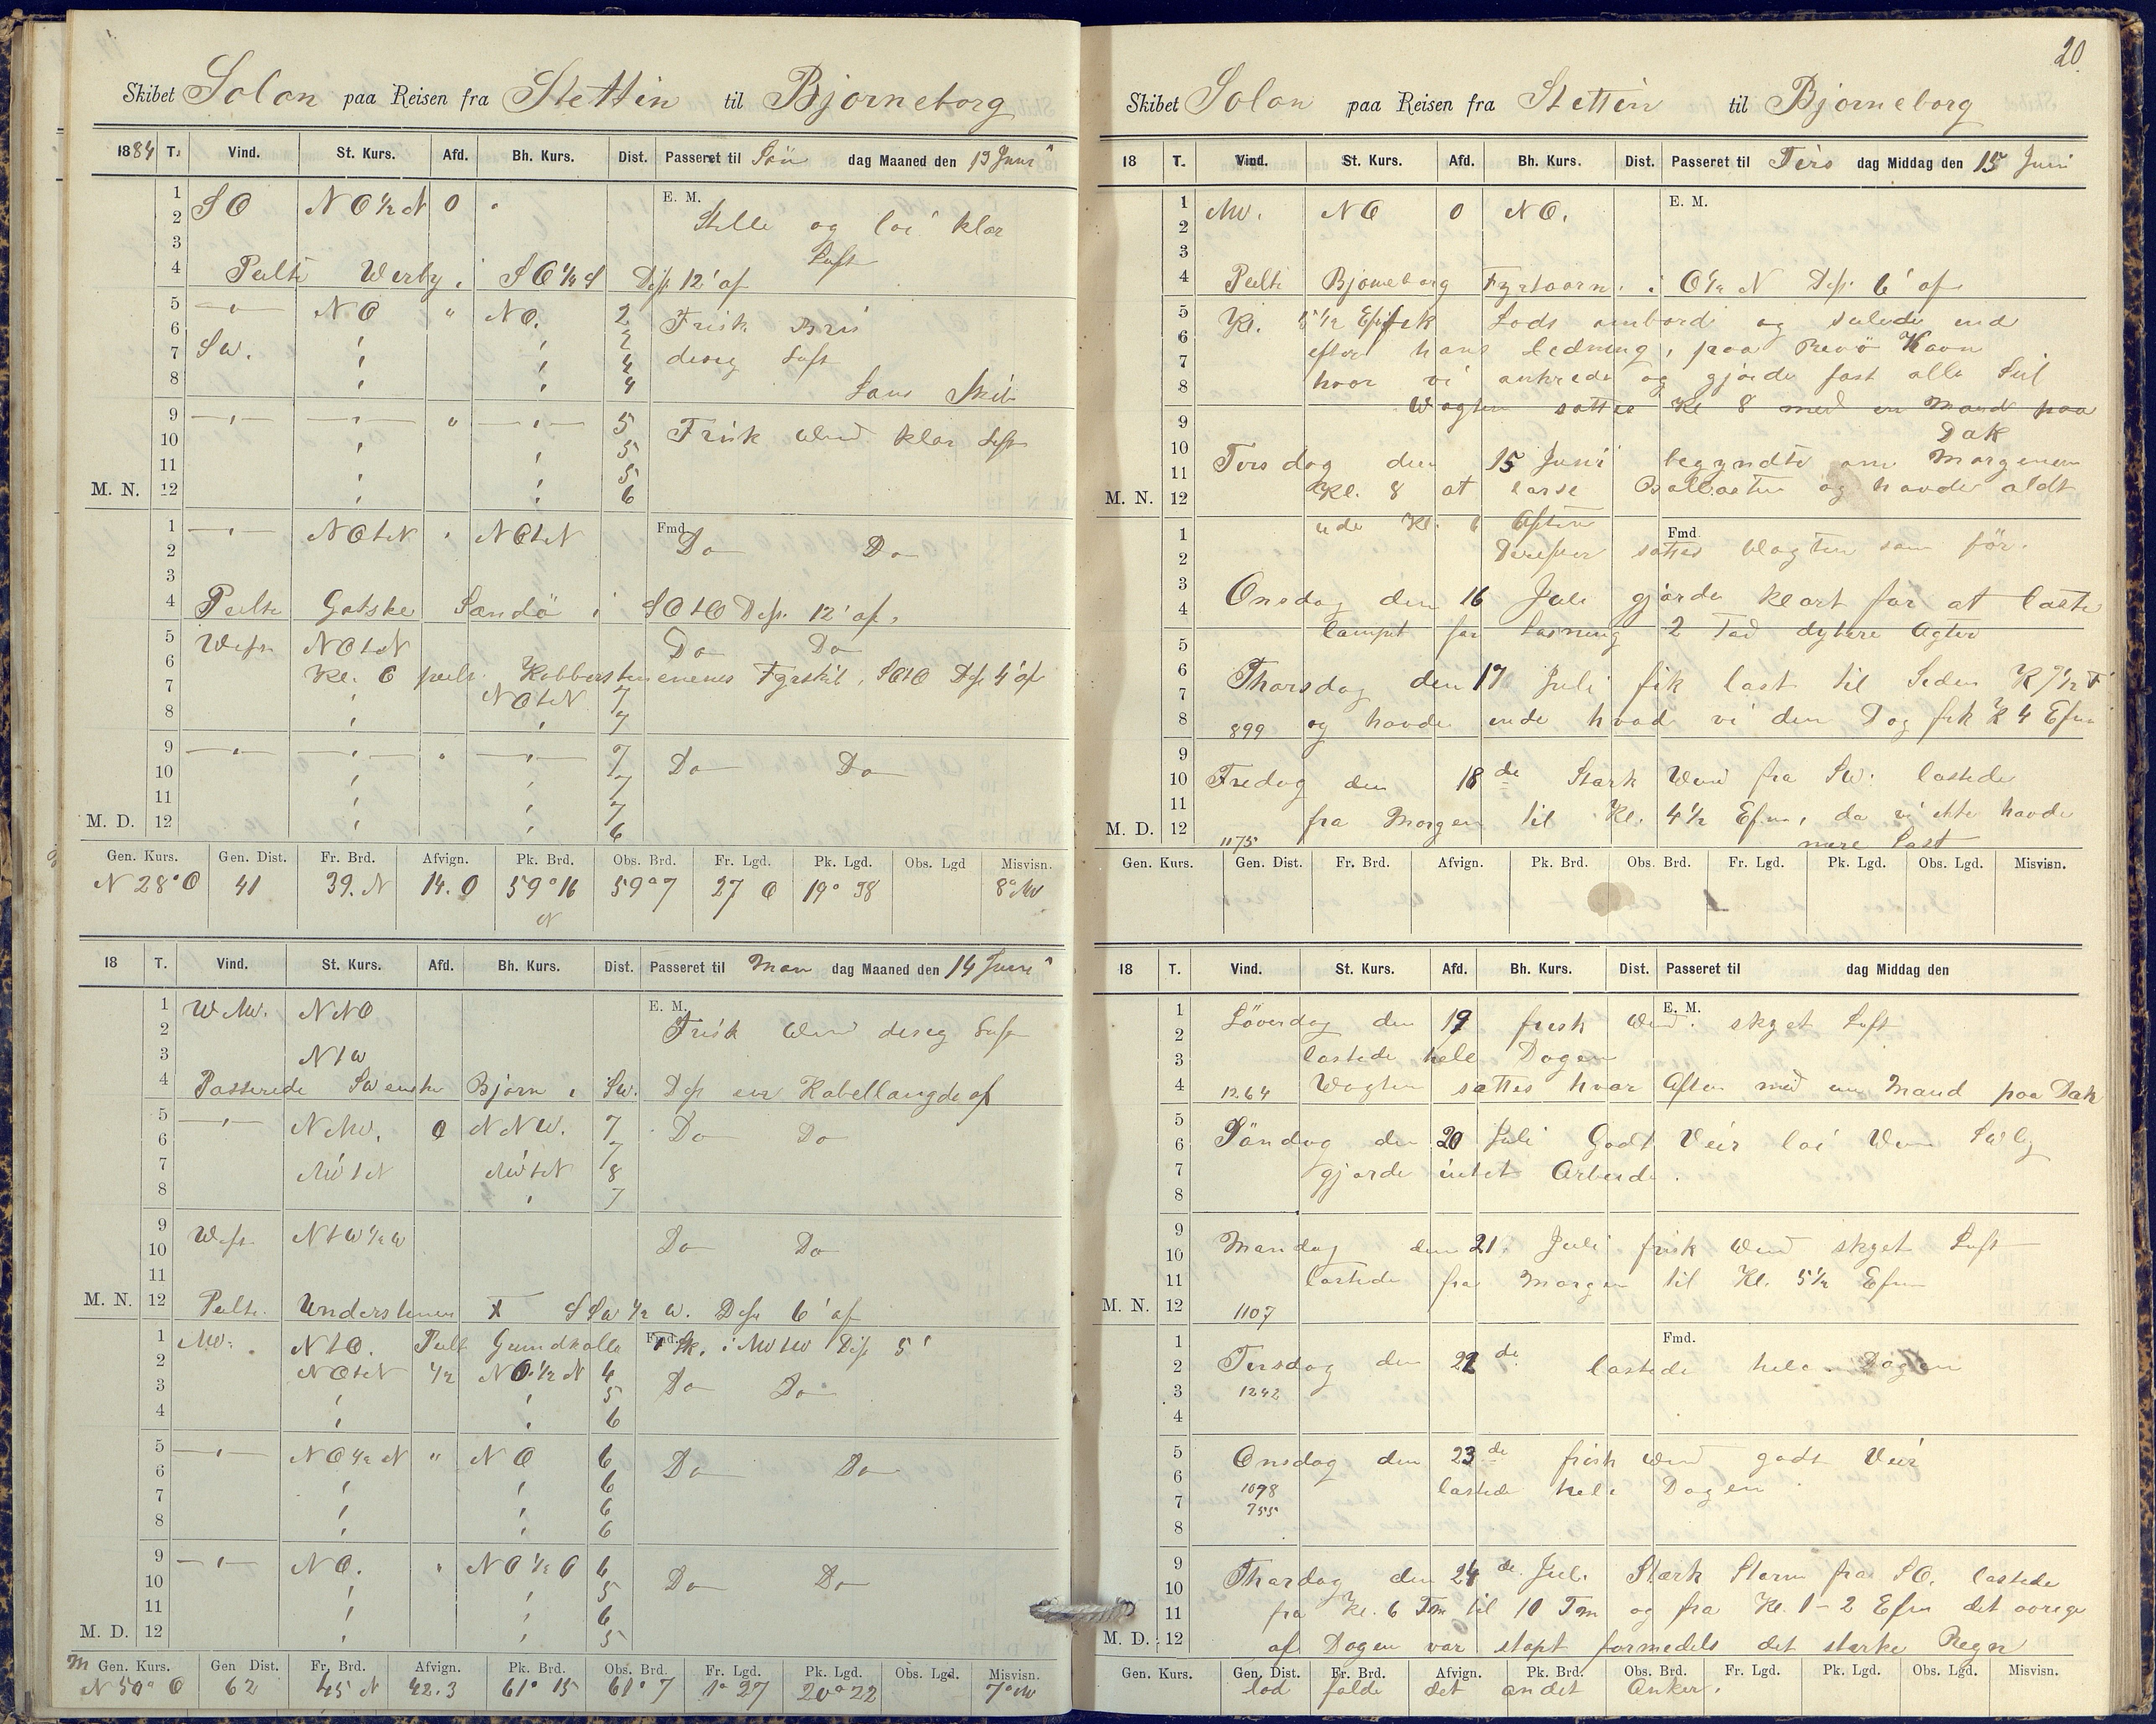 Skibet Solon paa Reisen fra Stettin til Bjorneborg
1884 T. Vind. St. Kurs. Afd. Bh. Kurs. Dist. Passeret til Sön dag Maaned den 13 Juni
1 SO NO½N 0 E. M.
2 Stille og loi klar
3 Luft
4 Peilte SO¼S Dist 12' af
5 NO " NO. 2 Frisk Bris
6 2
7 SW. 4 diseg Luft
8 4
9 " 5 Frisk Wind klar Luft
10 5
11 5
M. N. 12 6
1 NOtN NOtN Fmd. Do Do
2
3
4 Peilte Gotske Sandö i SOtO Dist. 12' af.
5 West NOtN Do Do
6 Kl. 6 peilt. Fyrskib. SOtO Dist 4' af
7 NOtN 7
8 7
9 7 Do Do
10 7
11 7
M. D. 12 6
Gen. Kurs. Gen. Dist. Fr. Brd. Afvign. Pk. Brd. Obs. Brd. Fr. Lgd. Pk. Lgd. Obs. Lgd Misvisn.
N 28° O 41 39. N 14. O 59° 16 N 59° 7 27 O 19° 38 8° NW
18 T. Vind. St. Kurs. Afd. Bh. Kurs. Dist. Passeret til Man dag Maaned den 14 Juni
1 W NW. NNO E. M.
2 Frisk Wind diseg Luft
3 NtW
4 Passerede Swenske Bjorn i SW. Dist en Kabellangde af
5 NNW. 0 NNW. 7 Do Do
6 7
7 NWtN NWtN 8
8 7
9 West NtW½W
10 Do Do
11
M. N. 12 Peilte. Understenen SSW½W. Dist 6' af
1 NW. NtO. Peilt Grundkalle Fmd. Fsk. i NWtW Dist 5'
2 NOtN ½ NO.½N 4
3 5 Do Do
4 6
5 NO½N " NO 6
6 6 Do Do
7 6
8 6
9 NO. NO½O 6
10 5 Do Do
11 6
M. D. 12 5
Gen. Kurs. Gen Dist. Fr. Brd. Afvign. Pk. Brd. Obs. Brd. Fr. Lgd. Pk. Lgd. Obs. Lgd. Misvisn.
N 50° O 62 45 N 42.3 61° 15 61° 7 1° 27 20° 22 7° NW
20
Skibet Solon paa Reisen fra Stettin til Bjorneborg
18 T. Vind. St. Kurs. Afd. Bh. Kurs. Dist. Passeret til Tirs dag Middag den 15 Juni
1 NW. NO 0 NO. E. M.
2
3
4 Peilte Bjorneborg Fyrtaarn. i O½N Dist. 6' af
5 Kl. 5½ fik Lods ombord og seilede ind
6 efter hans Ledning, paa Revö Havn
7 hvor vi ankrede og gjorde fast alle Seil
8 Wagten sattes Kl 8 med en Mand paa
9 Dak
10 Tirsdag den 15 Juni begyndte om Morgenen
11 Kl. 8 at losse Ballasten og havde aldt
M. N. 12
1 ude Kl. 6 Aften Fmd.
2 Derefter sattes Wagten som för.
3 Onsdag den 16 Juli gjorde klart for at laste
4 lampt for Lasning 2 Fod dybere Agter
5
6 Thorsdag den 17 Juli fik last til Siden K 7½ F
7
8 899 og havde inde hvad vi den Dag fik K 4 Efm
9
10 Fredag den 18de Stark Wind fra SW. lastede
11 fra Morgen til Kl. 4½ Efm, da vi ikke havde
M. D. 12 1175 mere Last
Gen. Kurs. Gen. Dist. Fr. Brd. Afvign. Pk. Brd. Obs. Brd. Fr. Lgd. Pk. Lgd. Obs. Lgd. Misvisn.
18 T. Vind. St. Kurs. Afd. Bh. Kurs. Dist. Passeret til dag Middag den
1 Löverdag den 19 frisk Wind. skyet Luft E. M.
2
3 lastede hele Dagen
4 1264 Wagten sattes hvar Aften med en Mand paa Dak
5
6 Söndag den 20 Juli Godt Veir loi Wind SWlig
7 gjorde intet Arbeide.
8
9
10 Mandag den 21. Juli frisk Wind skyet Luft
11 lastede fra Morgen til Kl. 5½ Efm
M. N. 12 1107
1 Fmd.
2 Tirsdag den 22de lastede hele Dagen
3 1242
4
5 Onsdag den 23de frisk Wind godt Veir
6 1098 lastede hele Dagen
7 755
8
9 Thordag den 24de Juli Stark Storm fra SO. lastede
10
11 fra Kl. 6 Fm til 10 Fm og fra Kl. 1-2 Efm det ovrige
M. D. 12 af Dagen var stopt formedels det starke Regn
Gen. Kurs. Gen. Dist. Fr. Brd. Afvign. Pk. Brd. Obs. Brd. Fr. Lgd. Pk. Lgd. Obs. Lgd. Misvisn.
lod falde det andet Anker.